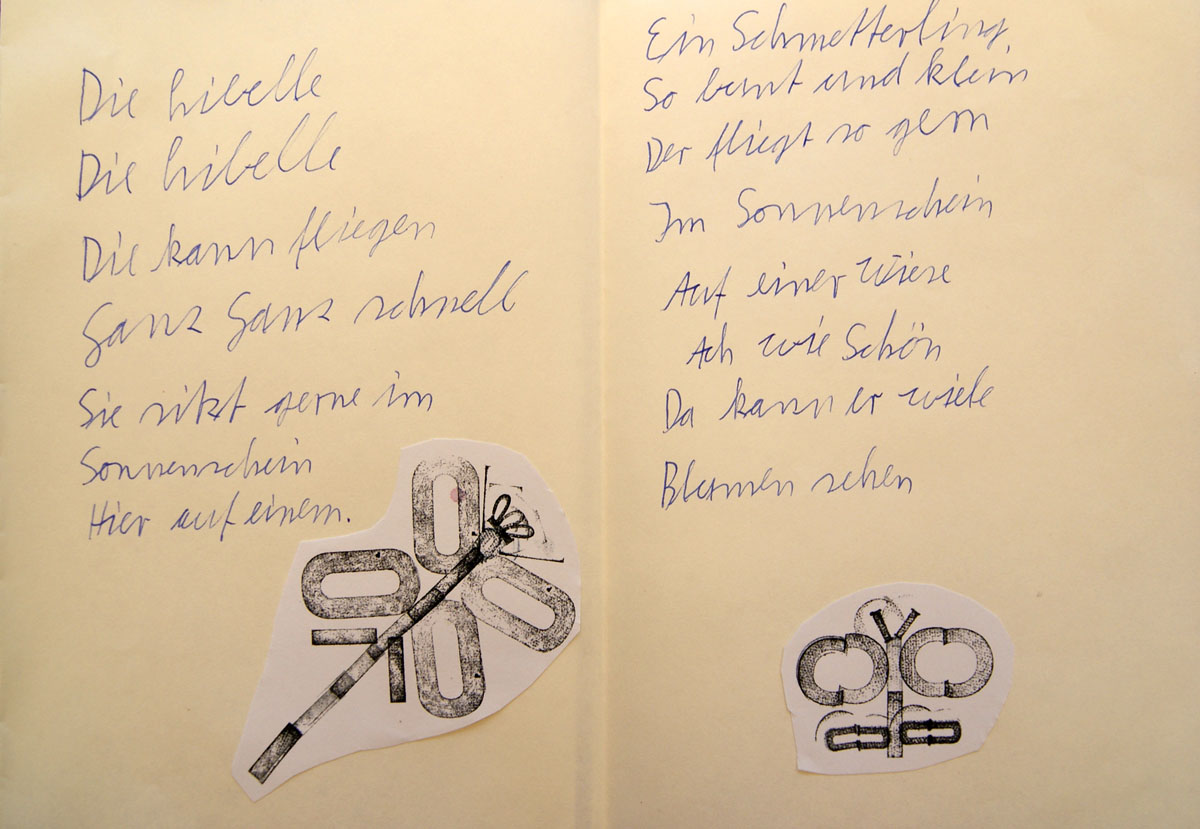 Die Libelle
Die Libelle
Die kann fliegen
Ganz Ganz schnell
Sie sitzt gerne im
Sonnenschein
Hier auf einem.
Ein Schmetterling,
So bunt und klein
Der fliegt so gern
Im Sonnenschein
Auf einer Wiese
Ach wie Schön
Da kann er wiele
Blumen sehen